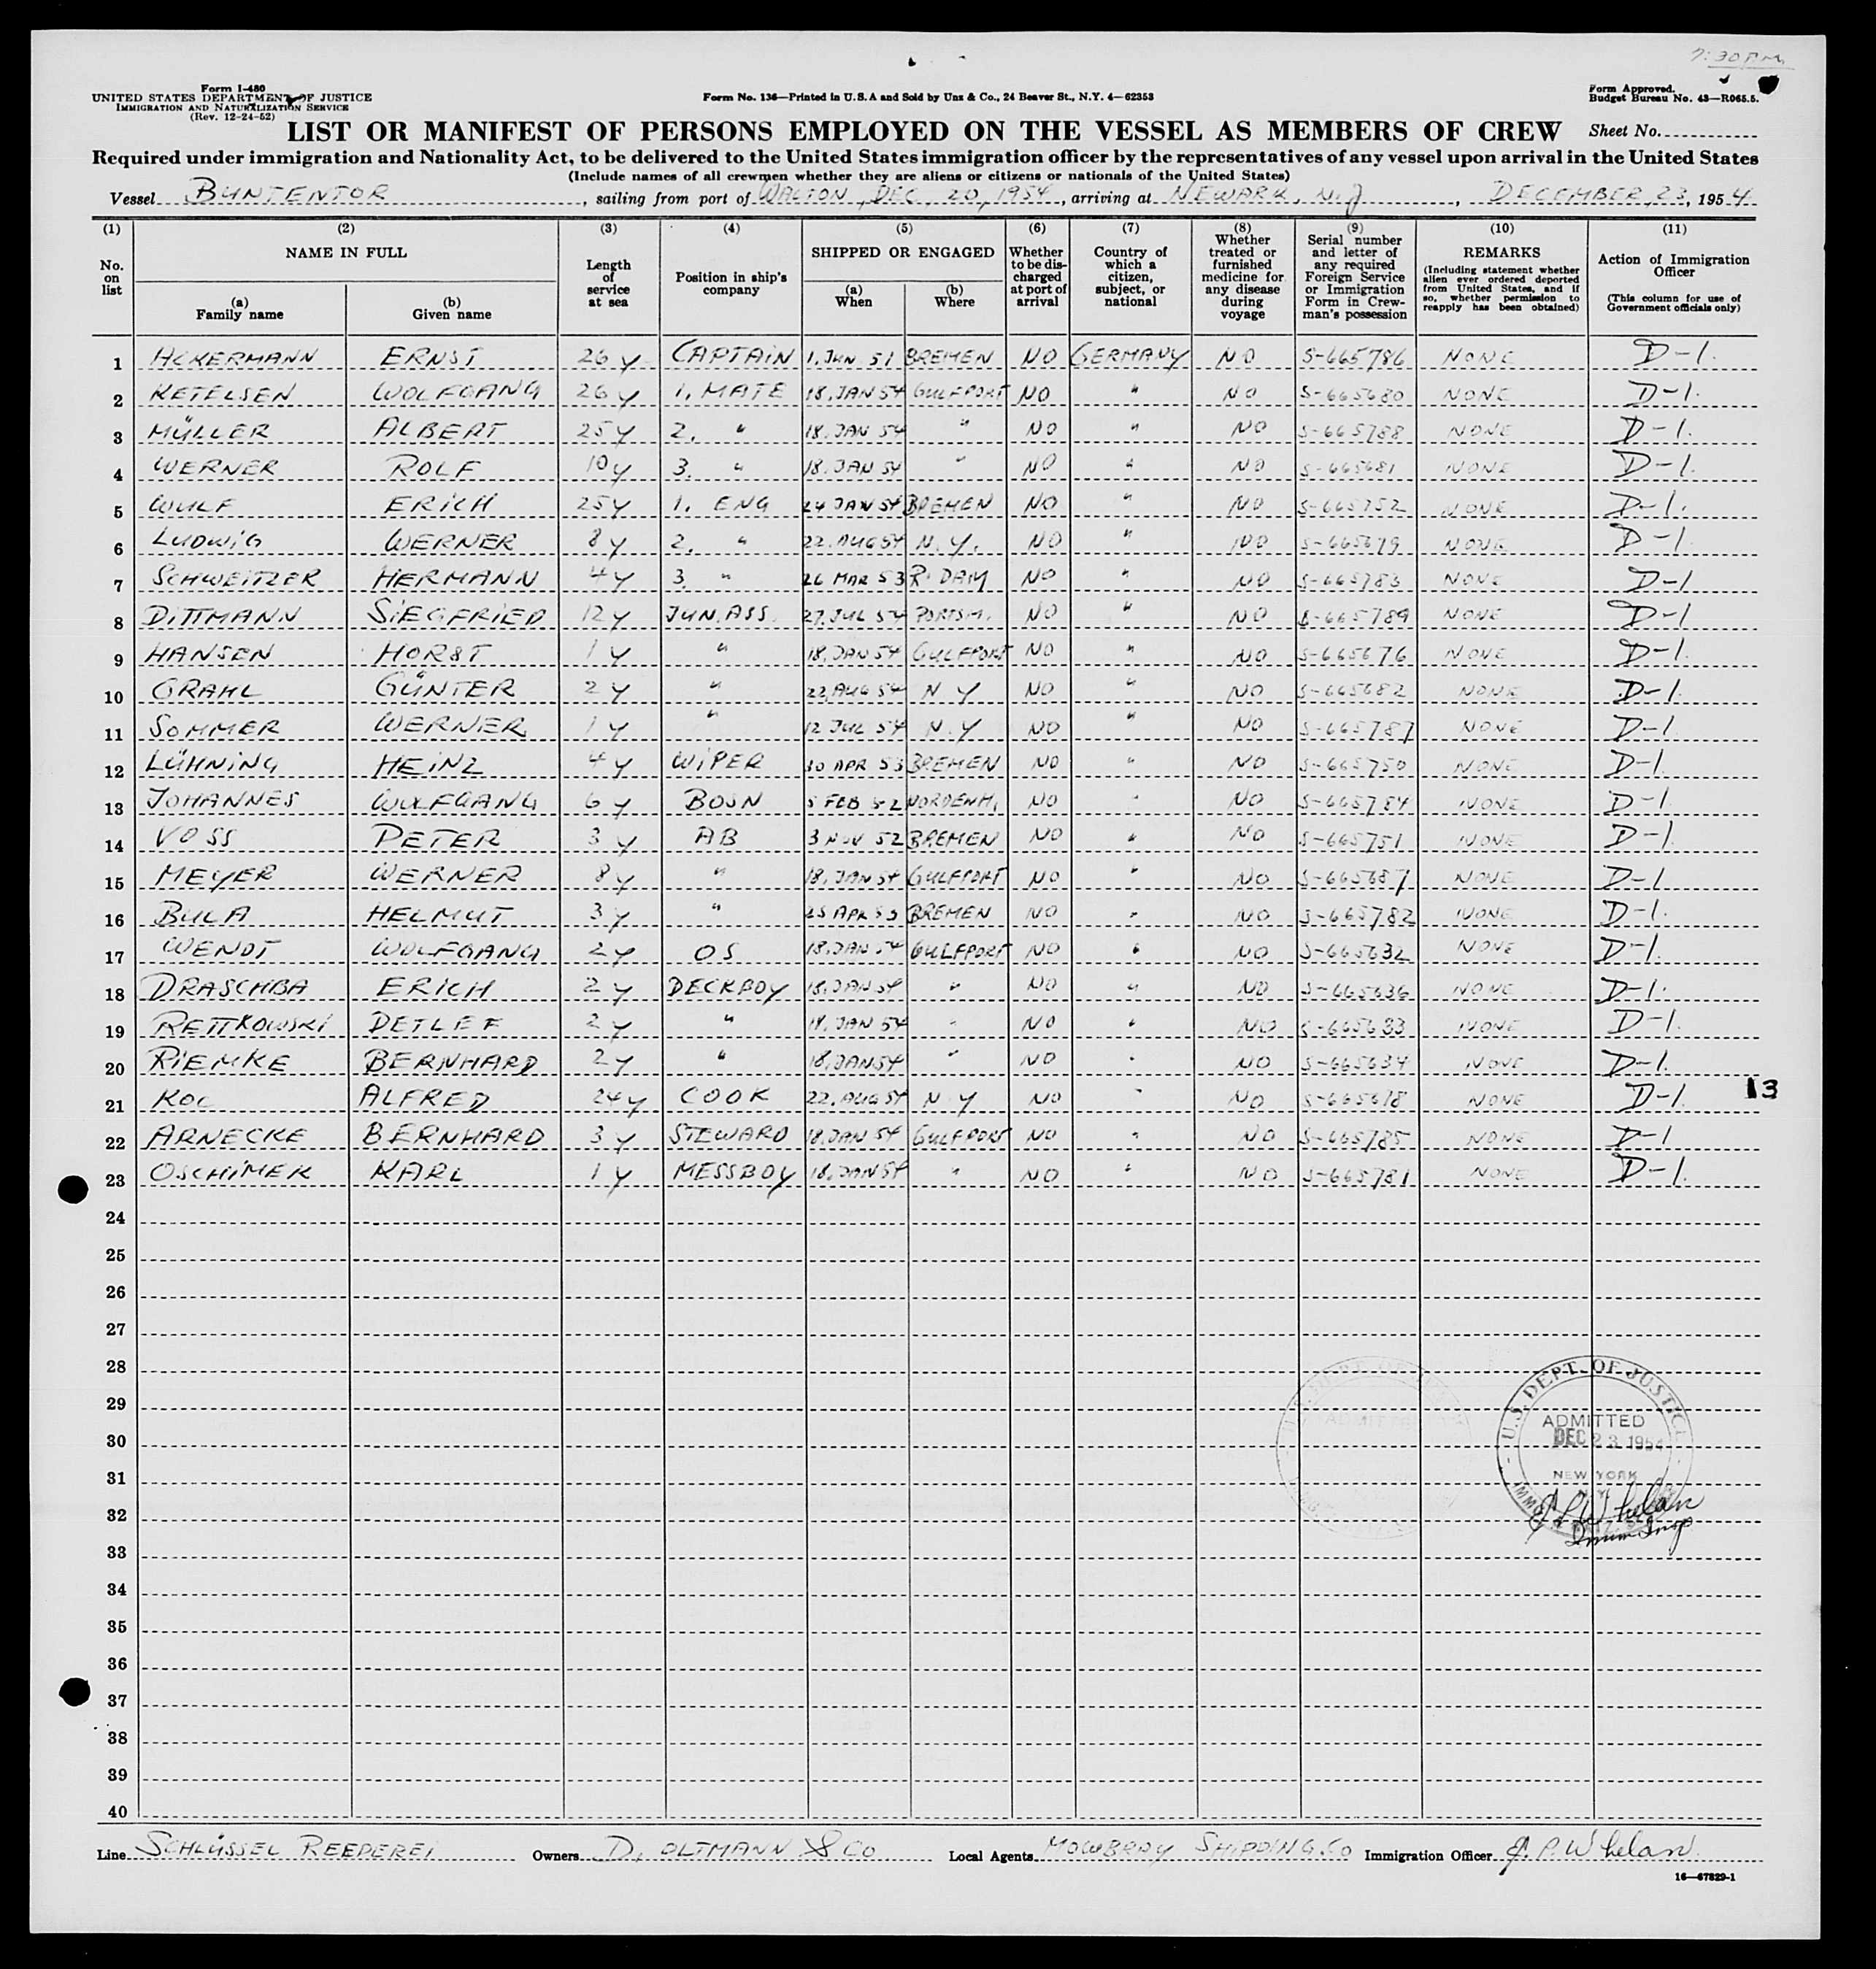 7:30 P.M.
Form I-480
UNITED STATES DEPARTMENT OF JUSTICE
IMMIGRATION AND NATURALIZATION SERVICE
(Rev. 12-24-52)
Form No. 136—Printed in U.S.A and Sold by Unz & Co., 24 Beaver St., N.Y. 4—62353
Form Approved.
Budget Bureau No. 43—R065.5.
LIST OR MANIFEST OF PERSONS EMPLOYED ON THE VESSEL AS MEMBERS OF CREW Sheet No.
Required under immigration and Nationality Act, to be delivered to the United States immigration officer by the representatives of any vessel upon arrival in the United States
(Include names of all crewmen whether they are aliens or citizens or nationals of the United States)
Vessel BUNTENTOR, sailing from port of WALTON, DEC, 20, 1954, arriving at NEWARK, N.J, DECEMBER, 23, 1954
(1) No. on list (2) NAME IN FULL (a) Family name (b) Given name (3) Length of service at sea (4) Position in ship's company (5) SHIPPED OR ENGAGED (a) When (b) Where (6) Whether to be discharged at port of arrival (7) Country of which a citizen, subject, or national (8) Whether treated or furnished medicine for any disease during voyage (9) Serial number and letter of any required Foreign Service or Immigration Form in Crewman's possession (10) REMARKS (Including statement whether alien ever ordered deported from United States, and if so, whether permission to reapply has been obtained) (11) Action of Immigration Officer (This column for use of Government officials only)
1 ACKERMANN ERNST 26 y CAPTAIN 1. JUN 51 BREMEN NO GERMANY NO S-665786 NONE D-1.
2 KETELSEN WOLFGANG 26 y 1. MATE 18. JAN 54 GULFPORT NO " NO S-665680 NONE D-1.
3 MÜLLER ALBERT 25 y 2. " 18. JAN 54 " NO " NO S-665788 NONE D-1.
4 WERNER ROLF 10 y 3. " 18. JAN 54 " NO " NO S-665681 NONE D-1.
5 WULF ERICH 25 y 1. ENG 24 JAN 54 BREMEN NO " NO S-665752 NONE D-1.
6 LUDWIG WERNER 8 y 2. " 22. AUG 54 N.Y. NO " NO S-665679 NONE D-1
7 SCHWEITZER HERMANN 4 y 3. " 26 MAR 53 R'DAM NO " NO S-665783 NONE D-1
8 DITTMANN SIEGFRIED 12 y JUN. ASS. 27. JUL 54 PORTSM. NO " NO S-665789 NONE D-1
9 HANSEN HORST 1 y " 18. JAN 54 GULFPORT NO " NO S-665676 NONE D-1.
10 GRAHL GÜNTER 2 y " 22. AUG 54 N Y NO " NO S-665682 NONE D-1.
11 SOMMER WERNER 1 y " 12 JUL 54 N.Y NO " NO S-665787 NONE D-1.
12 LÜHNING HEINZ 4 y WIPER 30 APR 53 BREMEN NO " NO S-665750 NONE D-1.
13 JOHANNES WOLFGANG 6 y BOSN 5 FEB 52 NORDENH. NO " NO S-665784 NONE D-1.
14 VOSS PETER 3 y AB 3 NOV 52 BREMEN NO " NO S-665751 NONE D-1.
15 MEYER WERNER 8 y " 18. JAN 54 GULFPORT NO " NO S-665687 NONE D-1
16 BULA HELMUT 3 y " 25 APR 53 BREMEN NO " NO S-665782 NONE D-1.
17 WENDT WOLFGANG 2 y OS 18. JAN 54 GULFPORT NO " NO S-665632 NONE D-1.
18 DRASCHBA ERICH 2 y DECKBOY 18. JAN 54 " NO " NO S-665636 NONE D-1.
19 RETTKOWSKI DETLEF 2 y " 18. JAN 54 " NO " NO S-665633 NONE D-1.
20 RIEMKE BERNHARD 2 y " 18. JAN 54 " NO " NO S-665634 NONE D-1.
21 KOC ALFRED 24 y COOK 22. AUG 54 N Y NO " NO S-665678 NONE D-1. 13
22 ARNECKE BERNHARD 3 y STEWARD 18. JAN 54 GULFPORT NO " NO S-665785 NONE D-1
23 OSCHIMEK KARL 1 y MESSBOY 18. JAN 54 " NO " NO S-665781 NONE D-1.
24
25
26
27
28
29
30
31
32
33
34
35
36
37
38
39
40
U.S. DEPT. OF JUSTICE
ADMITTED
DEC 23 1954
NEW YORK
Whelan
Imm Insp
Line SCHLÜSSEL REEDEREI Owners D. OLTMANN & CO Local Agents MOWBRAY SHIPPING CO Immigration Officer J. P. Whelan
16—67829-1